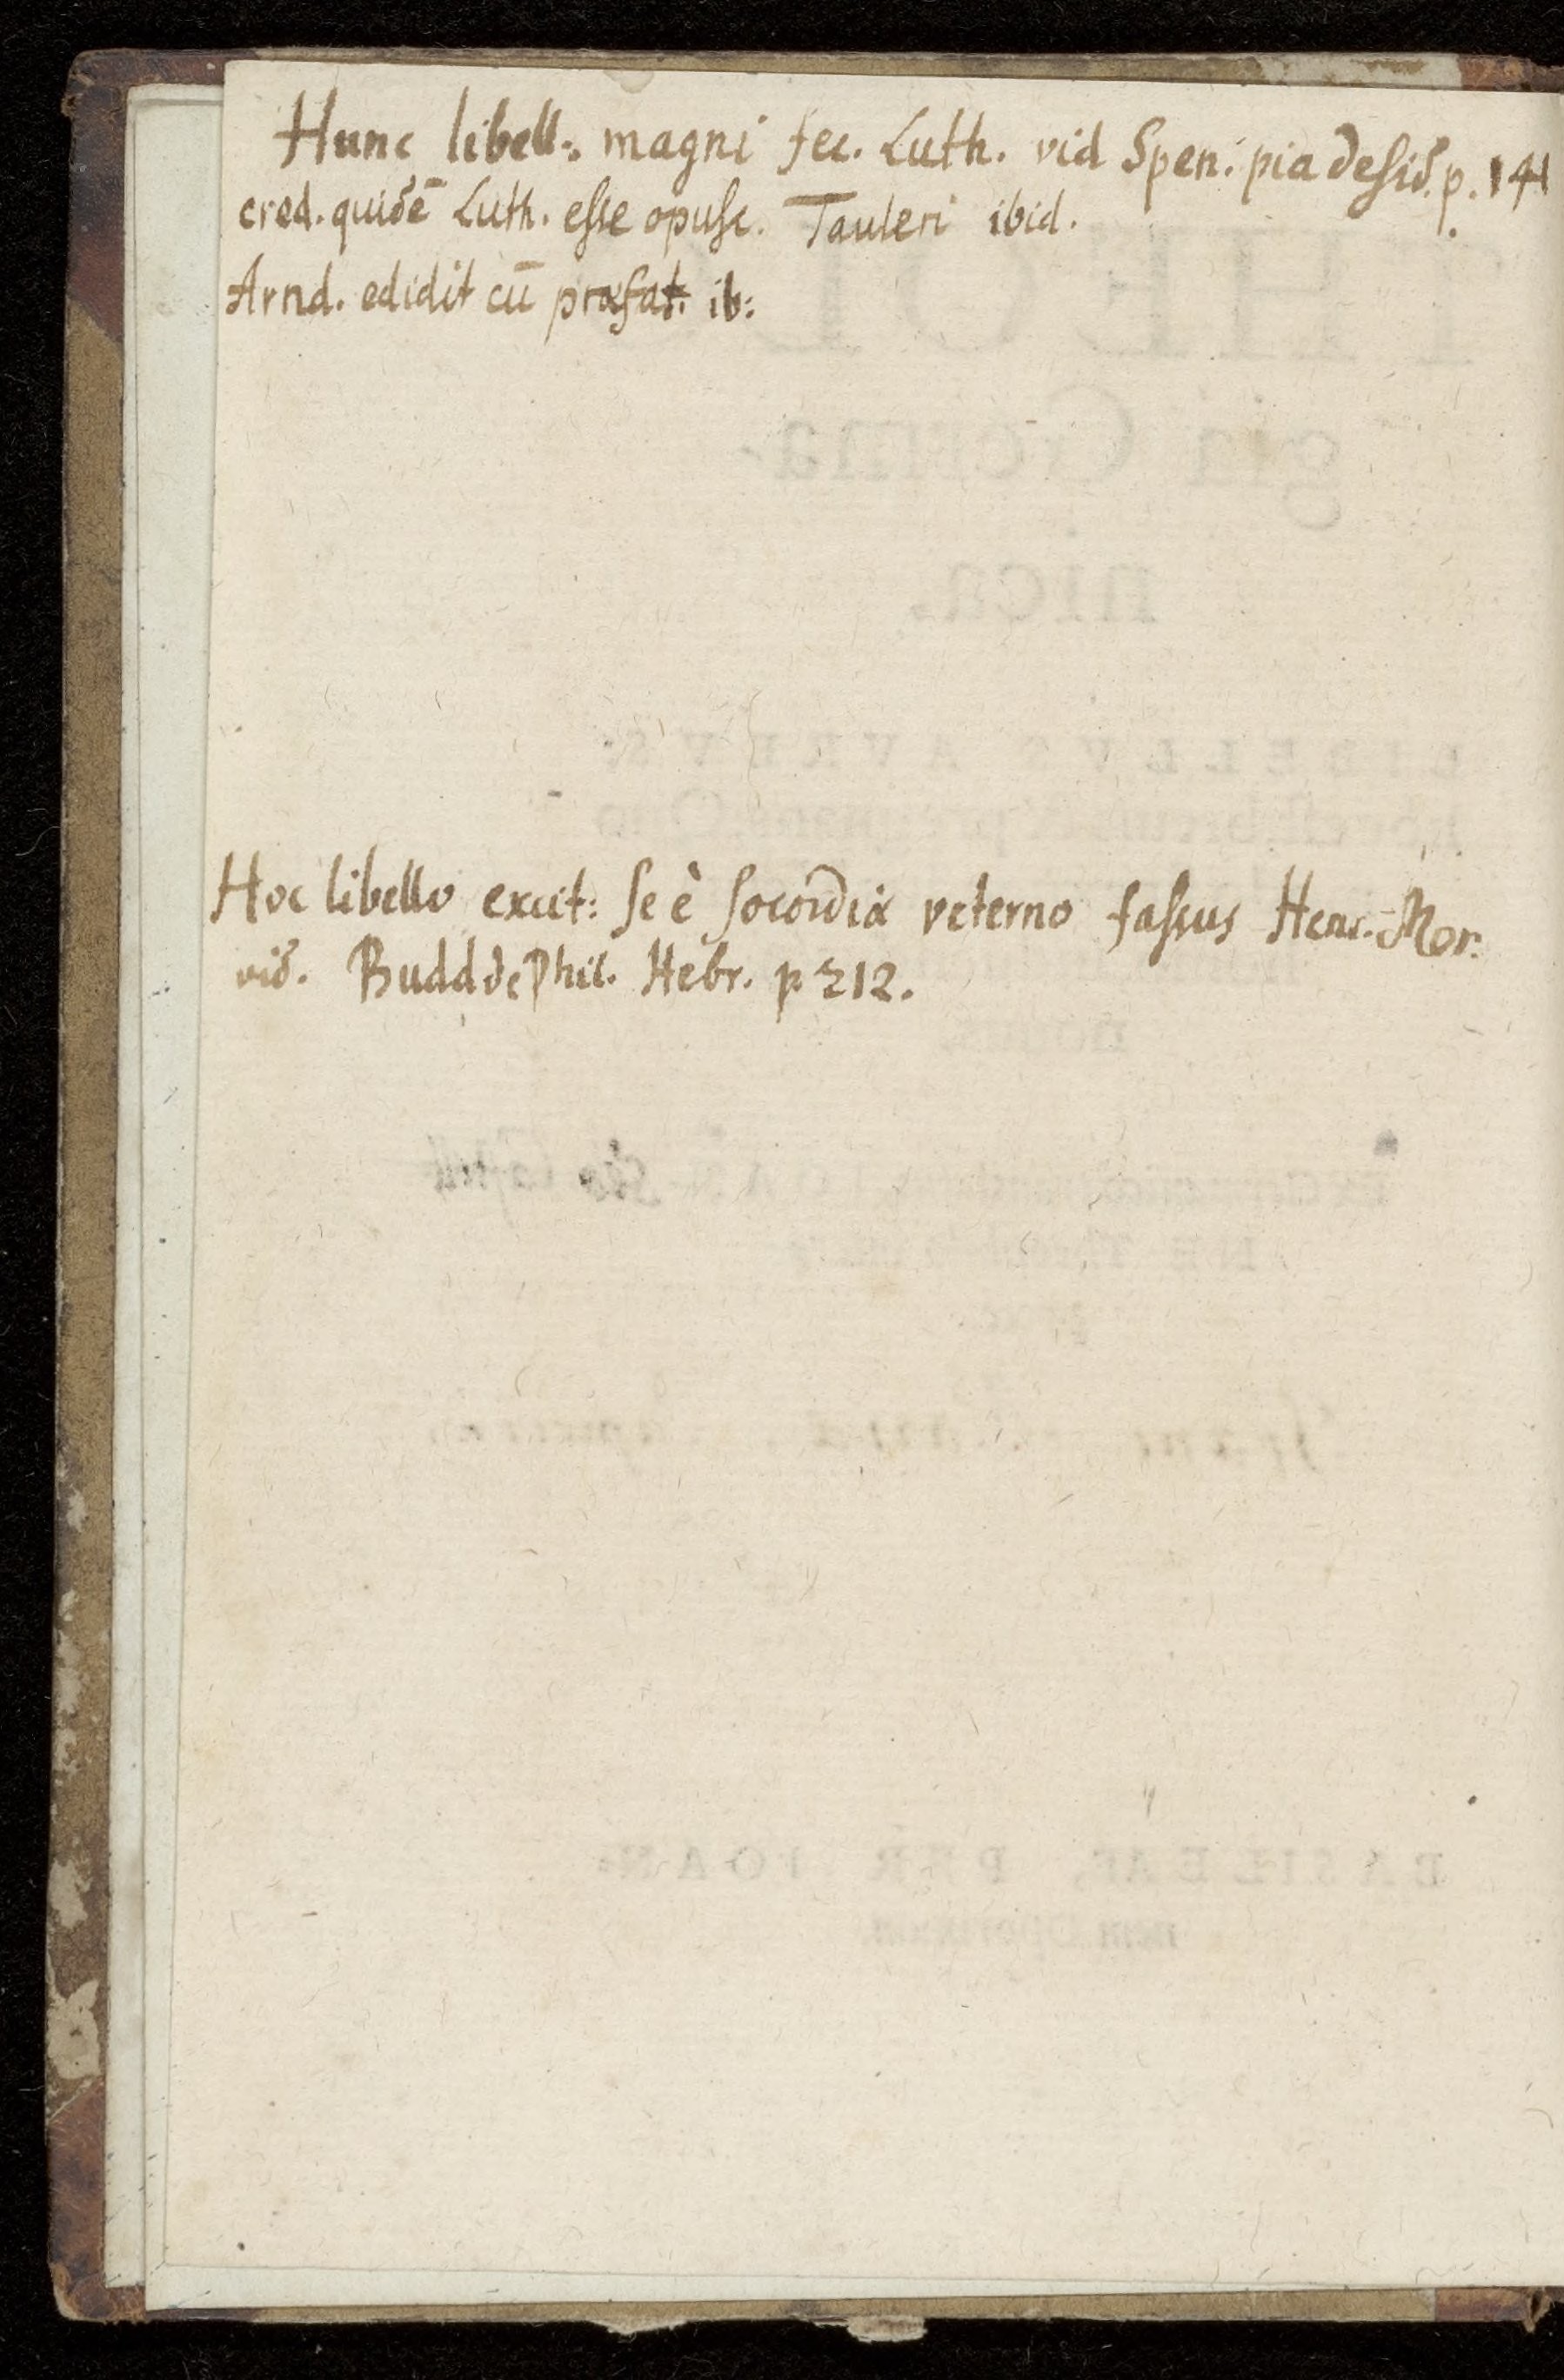 Hunc libell:. magni fec. Luth. vid Spen. pia desid. p. 141
cred. quidē Luth. esse opusc. Tauleri ibid.
Arnd. edidit cū præfat. ib:
Hoc libello excit: se è socordiæ veterno fassus Henr. Mor.
vid. Budd de Phil. Hebr. p. 212.